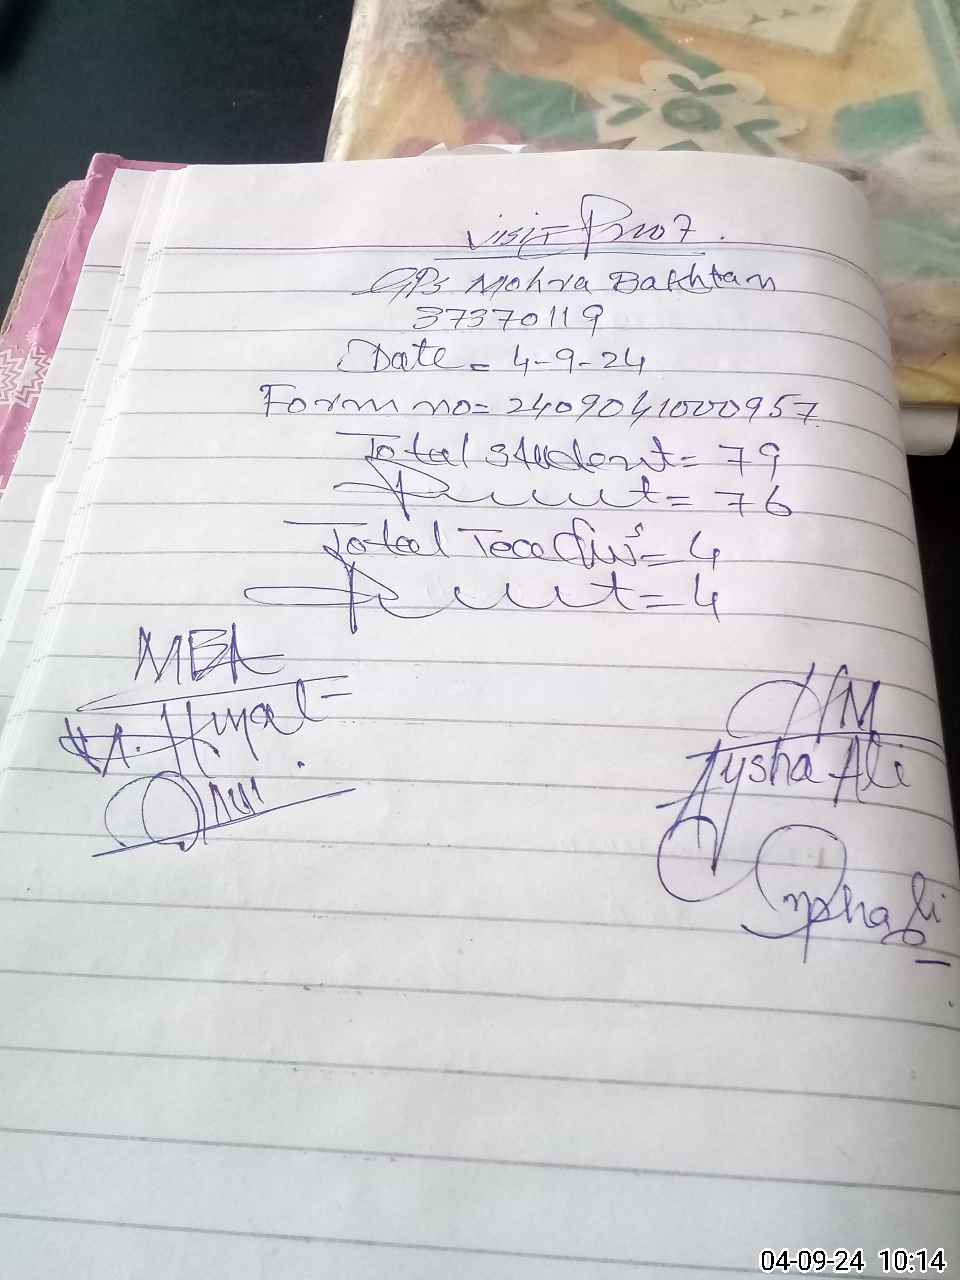 Visit Proof.
GPS Mohra Bakhtan
37370119
Date = 4-9-24
Form no = 2409041000957
Total student = 79
Present = 76
Total Teachers = 4
Present = 4
MEA
HM
Aysha Ali
Aysha Ali
04-09-24 10:14